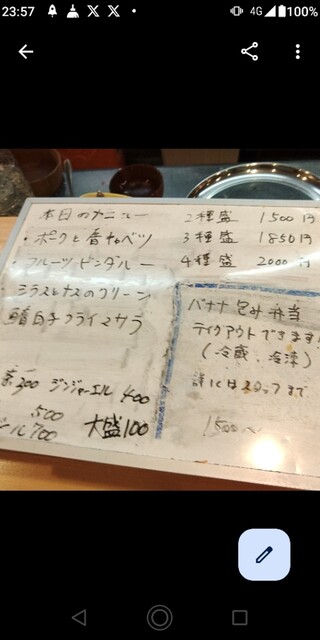 23:57
4G 100%
本日のカニュー
・ポークと春キャベツ
・フルーツビンダルー
・シラスとナスのグリーン
・鱈白子フライマサラ
2種盛 1500円
3種盛 1850円
4種盛 2000円
バナナ包み弁当
テイクアウトできます!
(冷蔵、冷凍)
1500
茶300 ジンジャーエル 400
500
ール700 大盛100